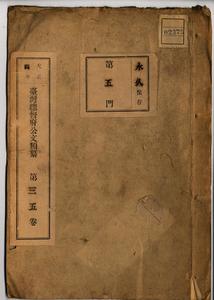 02373
永久保存
第五門
大正
臺灣總督府公文類纂 第三五卷